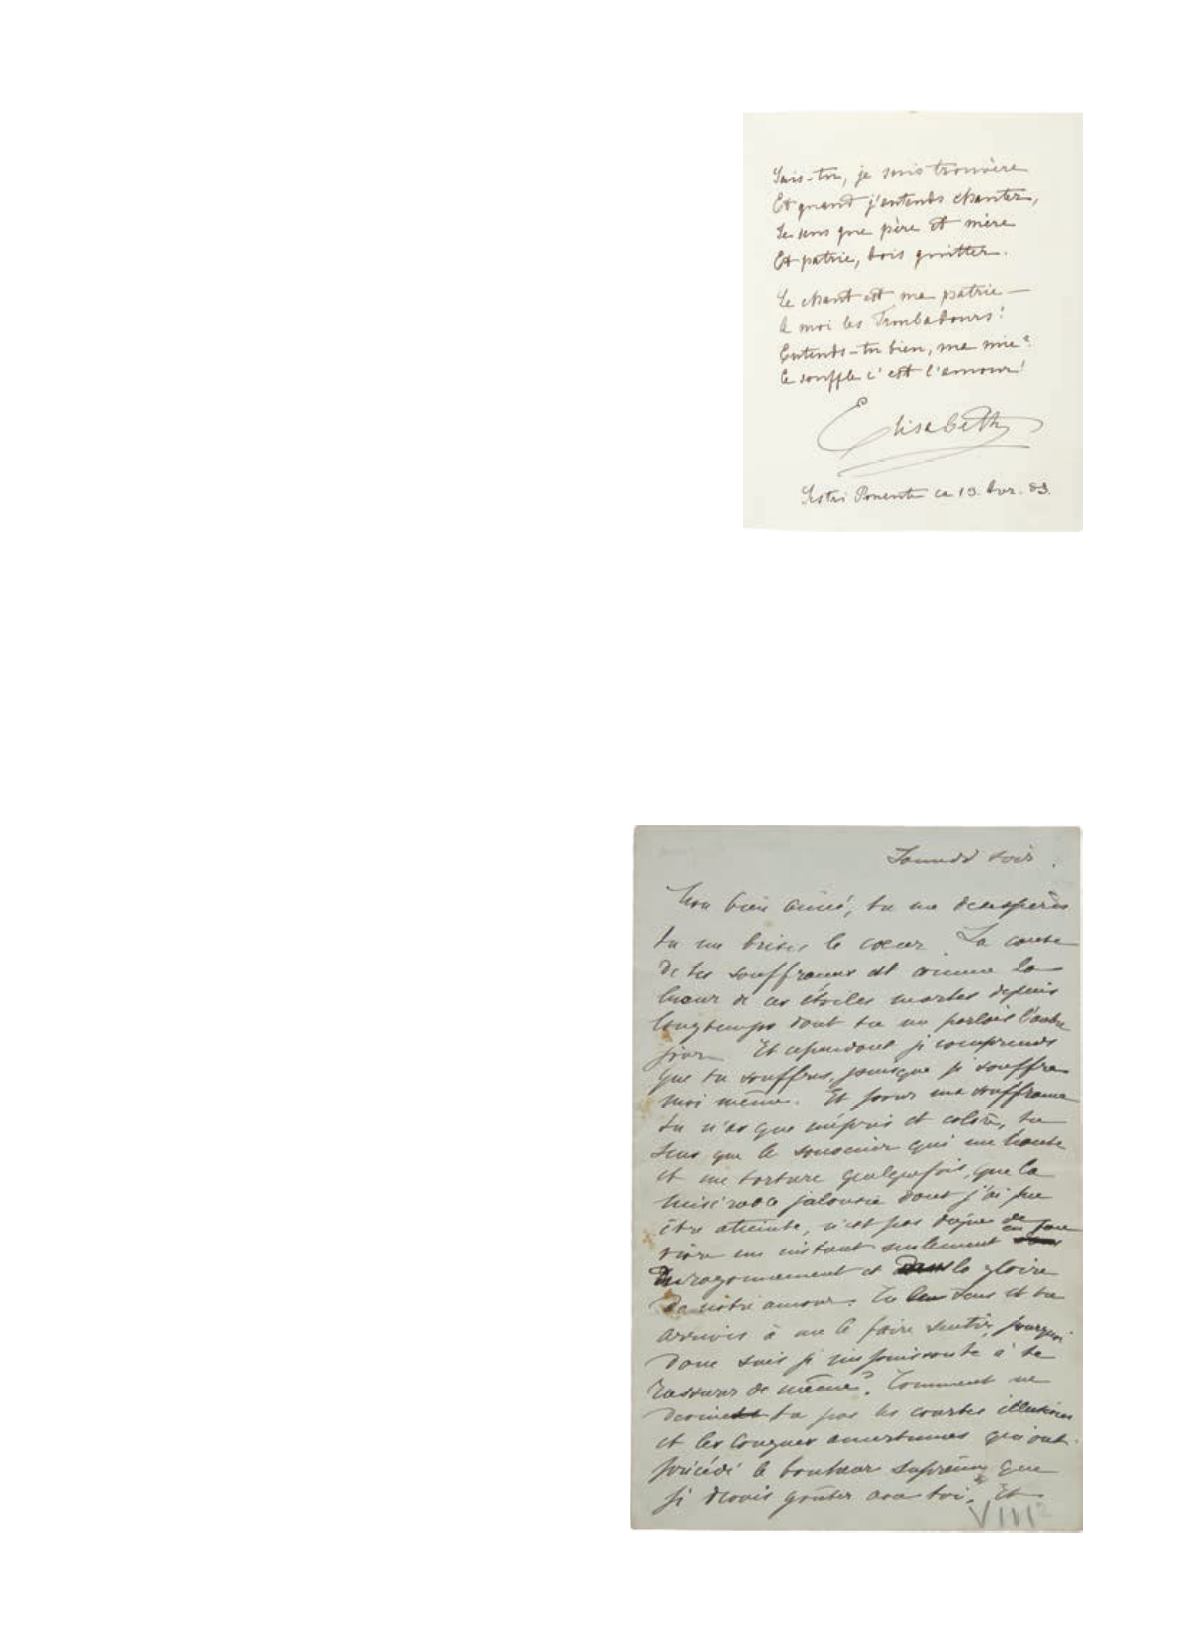 Sais-tu, je suis trouvère
Et quand j'entends chanter,
Je sens que père et mère
Et patrie, dois quitter.
Le chant est ma patrie —
A moi les Troubadours!
Entends-tu bien, ma mie?
Ce souffle c'est l'amour!
Elisabeth
Sestri Ponente ce 13. Avr.
Samedi soir.
Mon bien aimé, tu me désespères
tu me brises le cœur. La cause
de tes souffrances est comme la
lueur de ces étoiles mortes depuis
longtemps dont tu me parlais l'autre
jour. Et cependant je comprends
que tu souffres, puisque je souffre
moi même. Et pour ma souffrance
tu n'as que mépris et colère, tu
sens que le souvenir qui me hante
et me torture quelquefois, que la
misérable jalousie dont j'ai pu
être atteinte, n'est pas digne de
vivre un instant seulement
rayonnement et la gloire
de notre amour. Tu sens et tu
arrives à me le faire sentir, pourquoi
donc suis je impuissante à te
rassurer de même? Comment ne
devines tu pas les courtes illusions
et les longues amertumes qui ont
précédé le bonheur suprême que
je devais goûter avec toi. Et
VIII